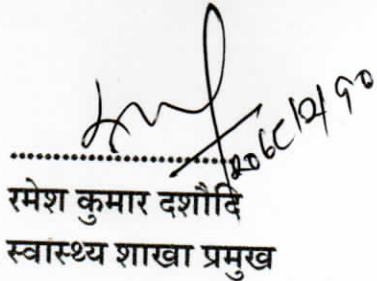 २०६८/२/१०
रमेश कुमार दशौदि
स्वास्थ्य शाखा प्रमुख